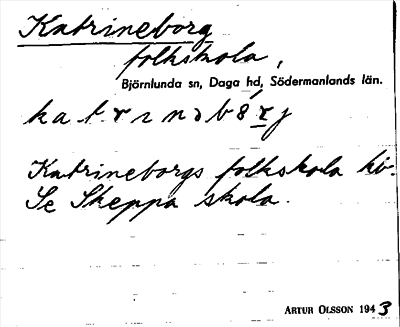 Katrineborg
folkskola,
Björnlunda sn, Daga hd, Södermanlands län.
Katrineborgs folkskola
Se Skeppa skola.
ARTUR OLSSON 1943